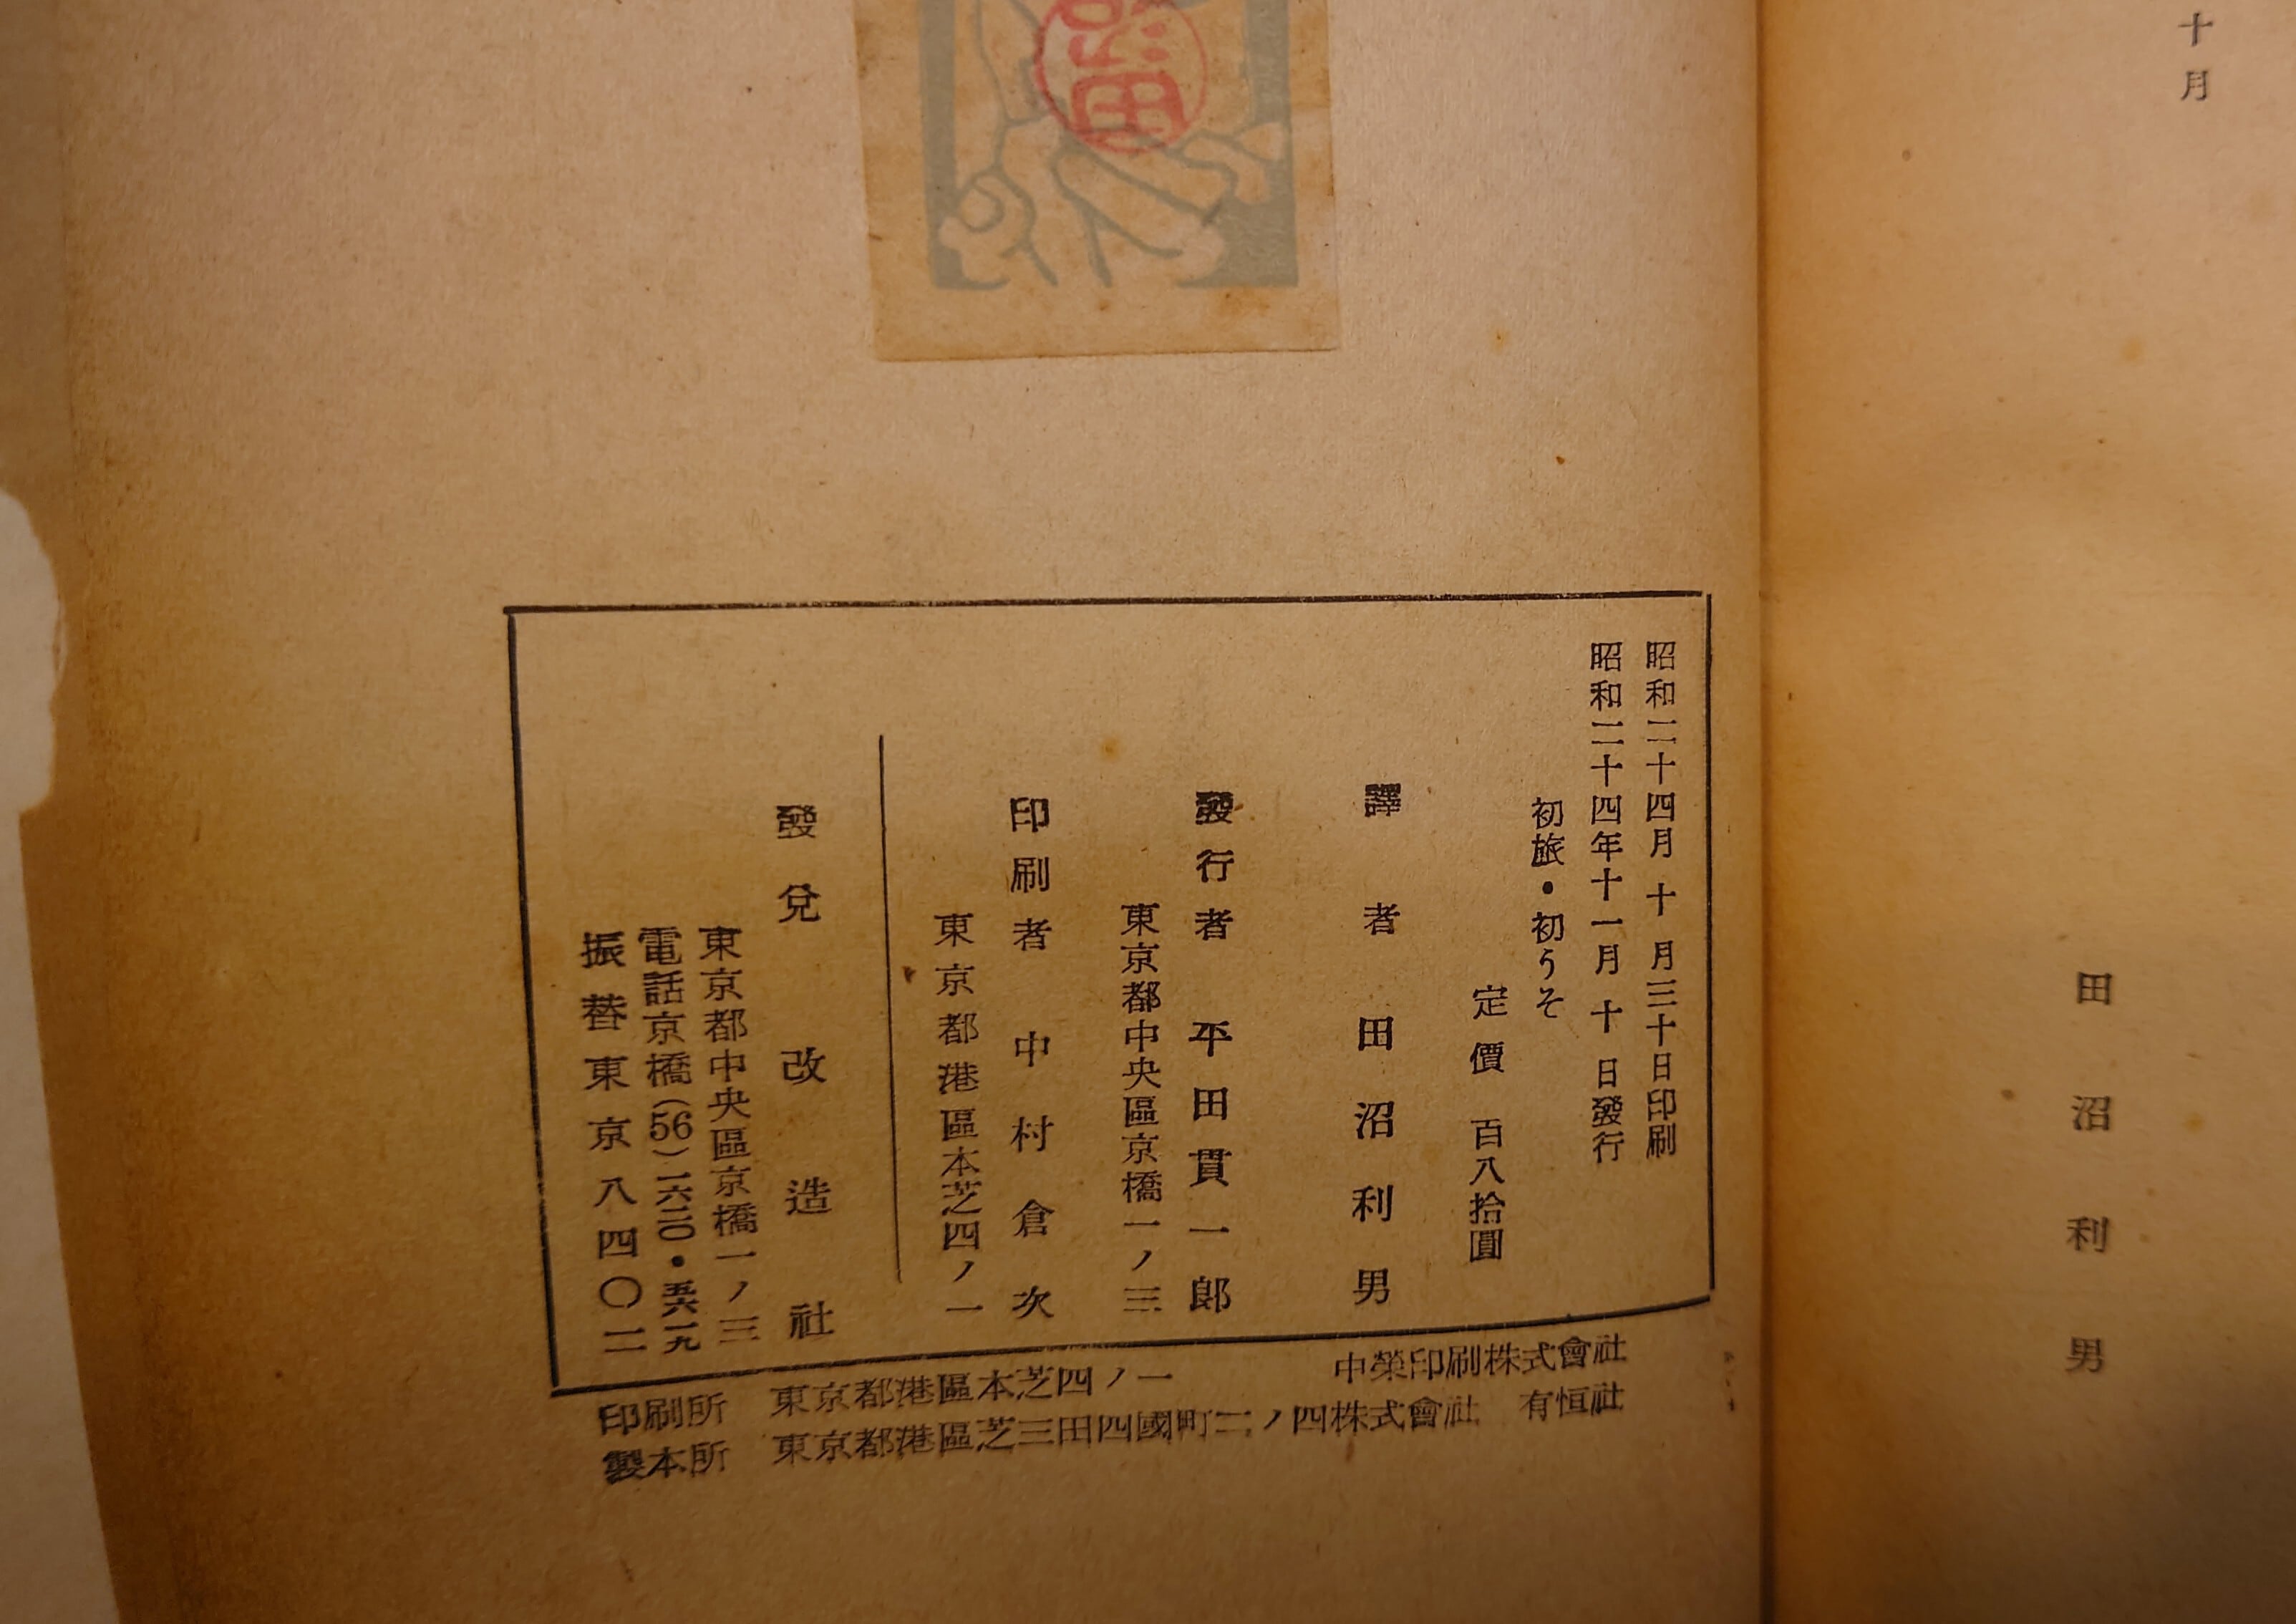 十月
田沼利男
昭和二十四月十月三十日印刷
昭和二十四年十一月十日發行
初旅・初うそ
定價 百八拾圓
譯者 田沼利男
發行者 平田貫一郎
東京都中央區京橋一ノ三
印刷者 中村倉次
東京都港區本芝四ノ一
發兌 改造社
東京都中央區京橋一ノ三
電話京橋(56)一六二〇・五六一九
振替東京八四〇二
印刷所 東京都港區本芝四ノ一 中榮印刷株式會社
製本所 東京都港區芝三田四國町二ノ四株式會社 有恒社